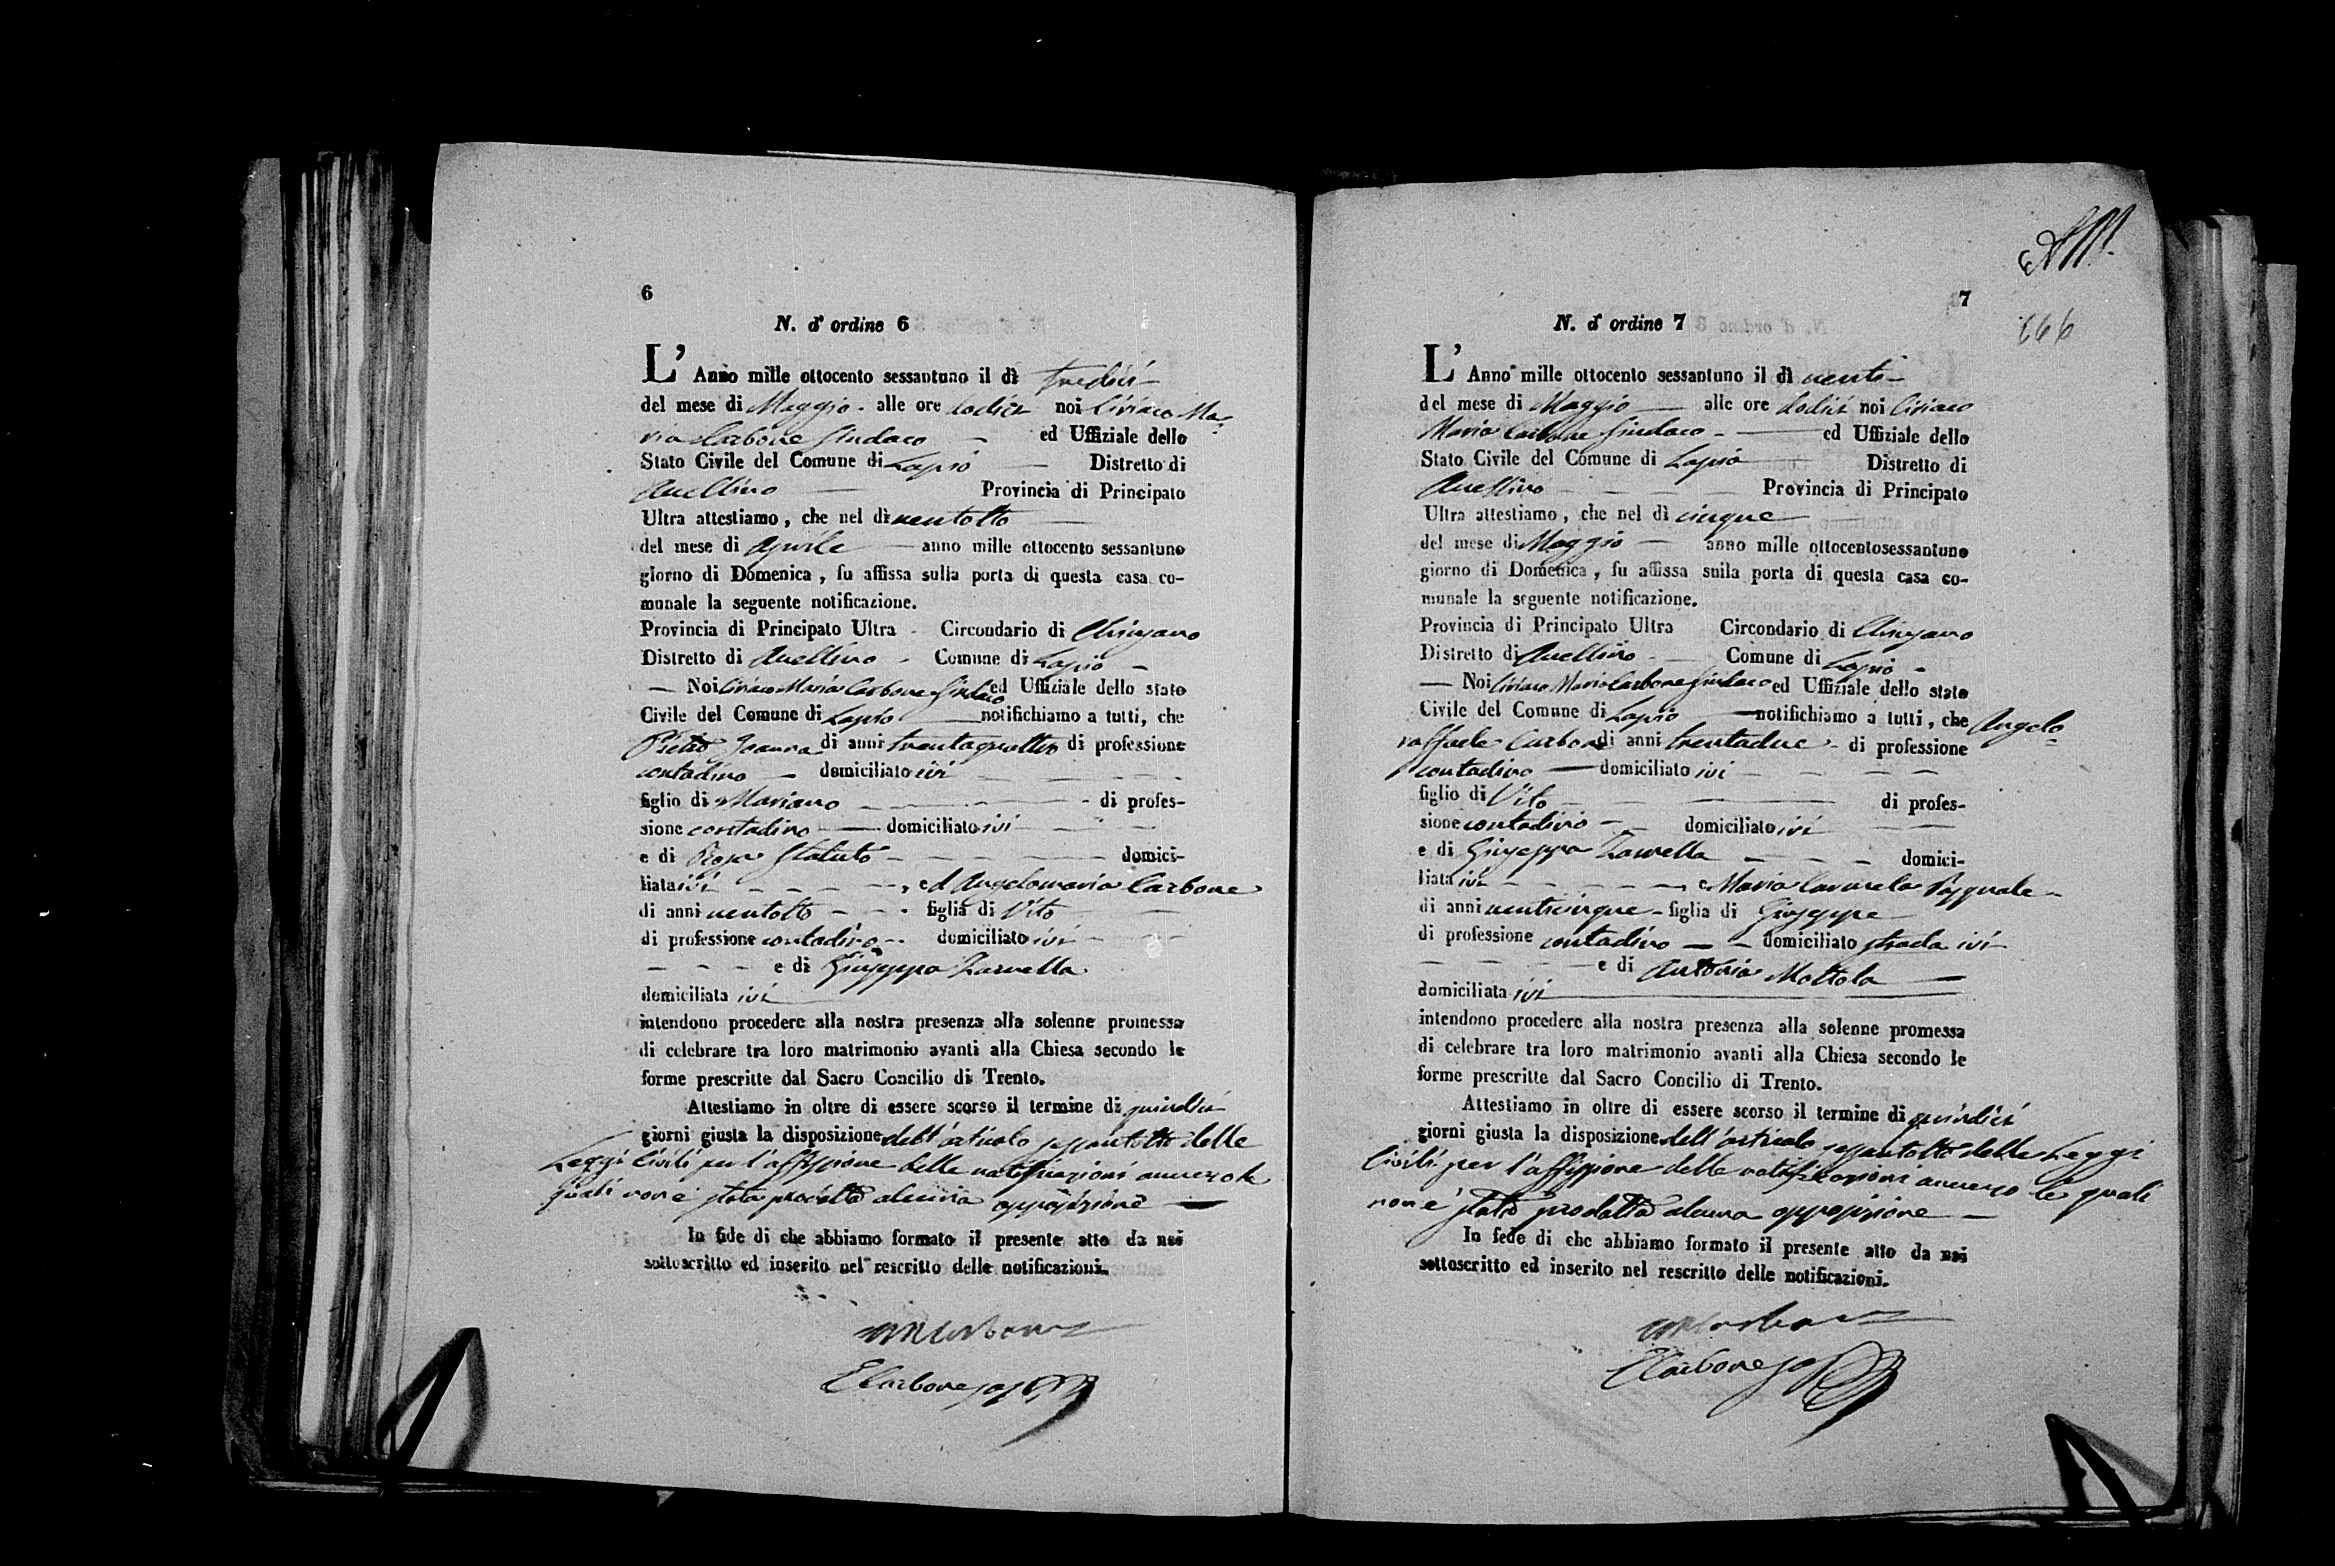 6
N. d' ordine 6
L' Anno mille ottocento sessantuno il dì tredici
del mese di Maggio alle ore dodici noi Ciriaco Ma-
ria Carbone Sindaco ed Uffiziale dello
Stato Civile del Comune di Lapio Distretto di
Avellino Provincia di Principato
Ultra attestiamo, che nel dì ventotto
del mese di Aprile anno mille ottocento sessantuno
giorno di Domenica, fu affissa sulla porta di questa casa co-
munale la seguente notificazione.
Provincia di Principato Ultra - Circondario di Chiusano
Distretto di Avellino - Comune di Lapio -
— Noi Ciriaco Maria Carbone Sindaco ed Uffiziale dello stato
Civile del Comune di Lapio notifichiamo a tutti, che
Pietro Joanna di anni trentaquattro di professione
contadino domiciliato ivi
figlio di Mariano di profes-
sione contadino domiciliato ivi
e di Rosa Statuto domici-
liata ivi , ed Angelamaria Carbone
di anni ventotto figlia di Vito
di professione contadino domiciliato ivi
e di Giuseppa Zarrella
domiciliata ivi
intendono procedere alla nostra presenza alla solenne promessa
di celebrare tra loro matrimonio avanti alla Chiesa secondo le
forme prescritte dal Sacro Concilio di Trento.
Attestiamo in oltre di essere scorso il termine di quindici
giorni giusta la disposizione dell'articolo sessantotto delle
Leggi Civili per l'affissione delle notificazioni avverso le
quali non è stata prodotta alcuna opposizione
In fide di che abbiamo formato il presente atto da noi
sottoscritto ed inserito nel rescritto delle notificazioni.
CM Carbone
E Carbone
7
666
N. d' ordine 7
L' Anno mille ottocento sessantuno il dì venti
del mese di Maggio alle ore dodici noi Ciriaco
Maria Carbone Sindaco ed Uffiziale dello
Stato Civile del Comune di Lapio Distretto di
Avellino Provincia di Principato
Ultra attestiamo, che nel dì cinque
del mese di Maggio anno mille ottocentosessantuno
giorno di Domenica, fu affissa sulla porta di questa casa co-
munale la seguente notificazione.
Provincia di Principato Ultra Circondario di Chiusano
Distretto di Avellino Comune di Lapio -
— Noi Ciriaco Maria Carbone Sindaco ed Uffiziale dello stato
Civile del Comune di Lapio notifichiamo a tutti, che Angelo
raffaele Carbone di anni trentadue di professione
contadino domiciliato ivi
figlio di Vito di profes-
sione contadino domiciliato ivi
e di Giuseppa Zarrella domici-
liata ivi , e Maria Carmela Pasquale
di anni venticinque figlia di Giuseppe
di professione contadino domiciliato strada ivi
e di Antonia Mottola
domiciliata ivi
intendono procedere alla nostra presenza alla solenne promessa
di celebrare tra loro matrimonio avanti alla Chiesa secondo le
forme prescritte dal Sacro Concilio di Trento.
Attestiamo in oltre di essere scorso il termine di quindici
giorni giusta la disposizione dell'articolo sessantotto delle Leggi
Civili per l'affissione delle notificazioni avverso le quali
non è stata prodotta alcuna opposizione
In fede di che abbiamo formato il presente atto da noi
sottoscritto ed inserito nel rescritto delle notificazioni.
CM Carbone
E Carbone